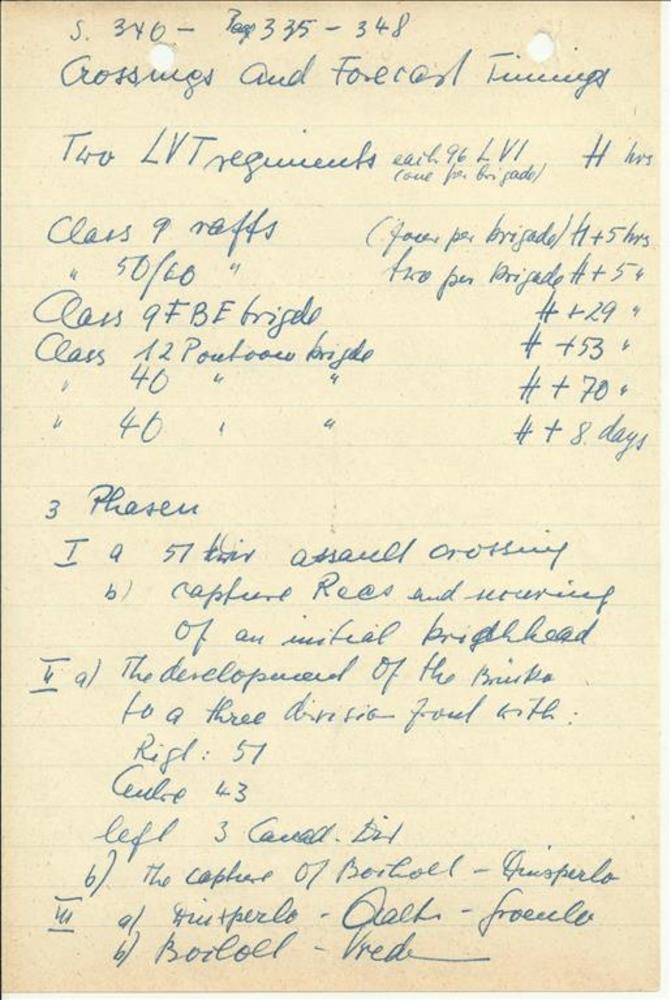 S. 340 - Page 335 - 348
Crossings and Forecast Timings
Two LVT regiments each 96 LVT H hrs
(one per brigade)
Class 9 rafts (four per brigade) H+5 hrs
" 50/60 " two per brigade H+5 "
Class 9 FBE brigde H+29 "
Class 12 Pontoon brigde H+53 "
" 40 " " H+70 "
" 40 " " H+8. days
3 Phasen
I a 51 assault crossing
b) capture Rees and securing
of an initial brigdhead
II a) The development of the
to a three division front with:
Right: 51
Centre 43
left 3 Canad. Div
b) the capture of Bocholt - Dinxperlo
III a) Dinxperlo - Aalten - Groenlo
b) Bocholt - Vreden